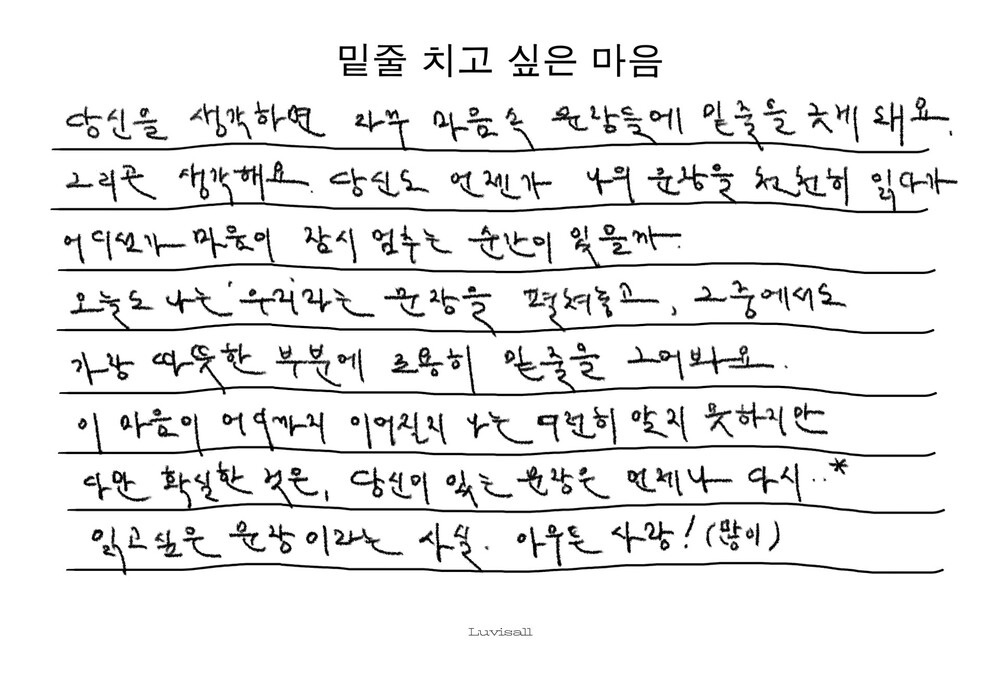 밑줄 치고 싶은 마음
당신을 생각하면 자꾸 마음속 문장들에 밑줄을 긋게 돼요.
그리곤 생각해요. 당신도 언젠가 나의 문장을 천천히 읽다가
어디선가 마음이 잠시 멈추는 순간이 있을까.
오늘도 나는 '우리'라는 문장을 펼쳐놓고, 그중에서도
가장 따뜻한 부분에 조용히 밑줄을 그어봐요.
이 마음이 어디까지 이어질지 나는 여전히 알지 못하지만
다만 확실한 것은, 당신이 있는 문장은 언제나 다시..*
읽고싶은 문장이라는 사실. 아무튼 사랑! (많이)
Luvisall